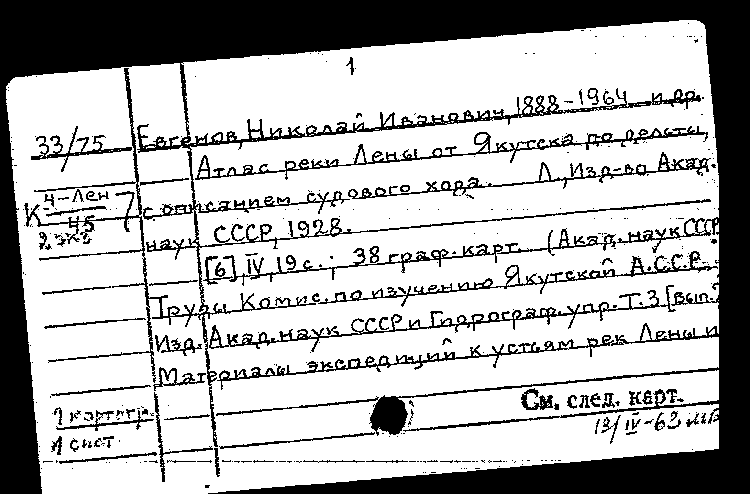 1
33/75 Евгенов, Николай Иванович, 1888-1964 и др.
Атлас реки Лены от Якутска до дельты,
К 4-Лен/45 с описанием судового хода. Л., Изд-во Акад.
2 экз наук СССР, 1928.
[6], IV, 19 с.; 38 граф. карт. (Акад. наук СССР
Труды Комис. по изучению Якутской А.С.С.Р.
Изд. Акад. наук СССР и Гидрограф. упр. Т. 3 [вып.
Материалы экспедиций к устьям рек Лены и
1 картогр.
См. след. карт.
1 сист
13/IV-62